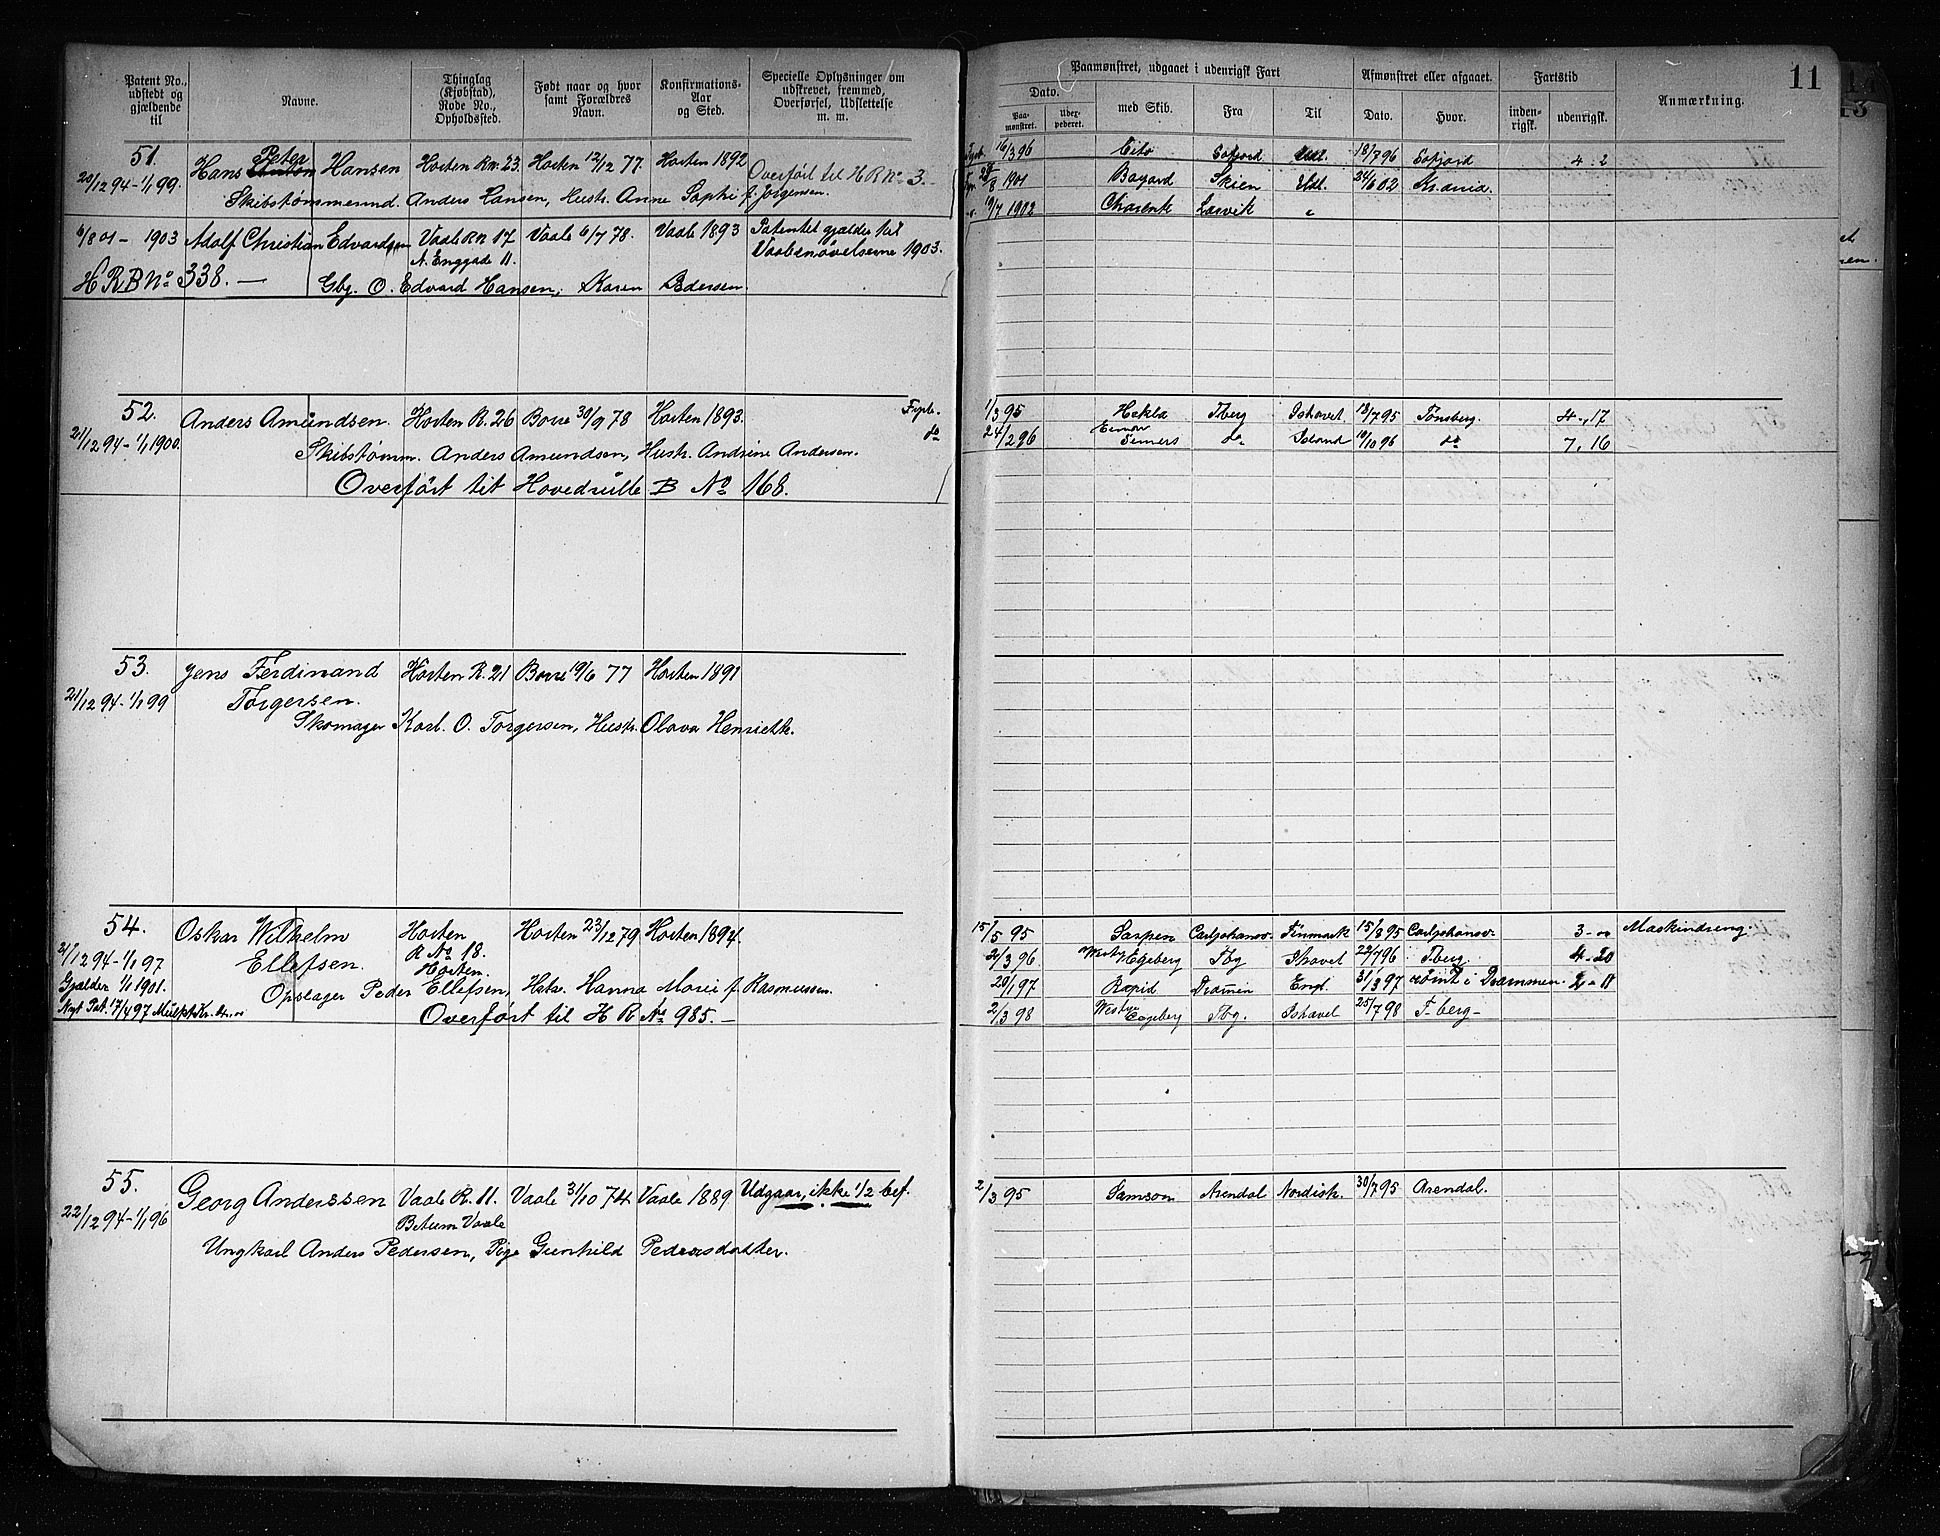 Patent No., udstedt og gjældende til
Navne.
Thinglag (Kjøbstad), Rode No., Opholdssted.
Født naar og hvor samt Forældres Navn.
Konfirmations-Aar og Sted.
Specielle Oplysninger om udskrevet, fremmed, Overførsel, Udslettelse m. m.
51.
20/12 94 - 1/1 99.
Hans Peter Anton Hansen
Horten RN. 23.
Horten 12/12 77.
Horten 1892
Overført til H R No 3.
Skibstømmermd. Anders Hansen, Hustr. Anne Sophi f. Jørgensen.
6/8 01 - 1903
Adolf Christian Edvardsen
Vaale RN 17
N. Enggade 11.
Vaale 6/7 78.
Vaale 1893
Patentet gjælder til
Vaabenøvelserne 1903.
H R B No 338. —
Gbr. O. Edvard Hansen, Karen Pedersen.
52.
21/12 94 - 1/1 1900.
Anders Amundsen.
Horten R. 26
Borre 30/9 78
Horten 1893.
do
Skibstømm. Anders Amundsen, Hustr. Andrine Andersen.
Overført til Hovedrulle B No 168.
53.
21/12 94 - 1/1 99
Jens Ferdinand
Torgersen.
Horten R. 21
Borre 19/6 77
Horten 1891
Skomager Karl. O. Torgersen, Hustr. Olava Henriette.
54.
21/12 94 - 1/1 97
Oskar Wilhelm
Ellefsen.
Horten
R No 18.
Horten.
Horten 23/12 79
Horten 1894.
Gjælder 1/1 1901.
Opslager Peder Ellefsen, Hstr. Hanna Marie f. Rasmussen.
Nyt Pat. 17/4 97
Overført til H R No 985. —
55.
22/12 94 - 1/1 96
Georg Anderssen
Vaale R. 11.
Vaale 31/10 74
Vaale 1889
Udgaar, ikke 1/2 bef.
Vaale
Ungkarl Anders Pedersen, Pige Gunhild Pedersdatter.
11
Paamønstret, udgaaet i udenrigsk Fart
Afmønstret eller afgaaet.
Fartstid
Anmærkning.
Dato.
med Skib.
Fra
Til
Dato.
Hvor.
inden-rigsk.
udenrigsk.
Paa-mønstret.
Uder-pederet.
16/3 96 Cito Udl. 18/7 96 4 - 2
28/8 1901 Bayard Skien Udl. 24/6 02
19/7 1902 Charente Larvik "
1/3 95 Hekla Tberg Ishavet. 13/7 95 Tønsberg 4 - 17
24/2 96 do Island 10/10 96 do 7. 16
15/5 95 Sarpen Carljohansv. Finmark 15/8 95 Carljohansv. 3 - " Maskindreng.
2/3 96. Westy Egeberg Tbg Ishavet 22/7 96 Tberg. 4 - 20
20/1 97 Rapid Dramen Engl. 31/3 97 rømt i Drammen. 2 - 11
2/3 98 Westye Egeberg Tbg. Ishavet 25/7 98 T-berg -
2/3 95 Samson Arendal Nordish. 30/7 95 Arendal.